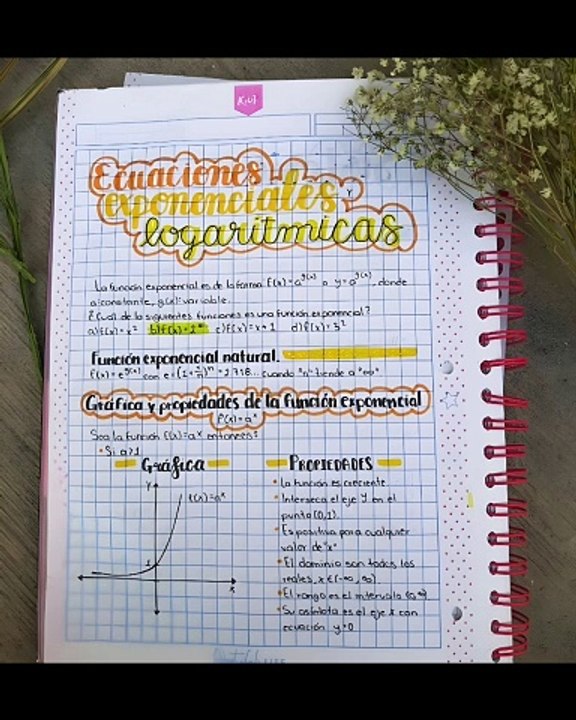 Ecuaciones
exponenciales y
logarítmicas
La función exponencial es de la forma f(x)=a^g(x) o y=a^g(x), donde
a: constante, g(x): variable.
¿Cuál de la siguientes funciones es una función exponencial?
a) f(x)=x² b) f(x)=2^x c) f(x)=x+1 d) f(x)=3²
Función exponencial natural.
f(x)=e^g(x) con e=(1+1/n)^n=2.718... cuando "n" tiende a "∞"
Gráfica y propiedades de la función exponencial
f(x)=a^x
Sea la función f(x)=a^x entonces:
• Si a>1
Gráfica
Y
f(x)=a^x
1
x
PROPIEDADES
• La función es creciente
• Interseca el eje Y en el
punto (0,1).
• Es positiva para cualquier
valor de "x"
• El dominio son todos los
reales, x ∈ (-∞, ∞).
• El rango es el intervalo (0,∞)
• Su asíntota es el eje x con
ecuación y=0